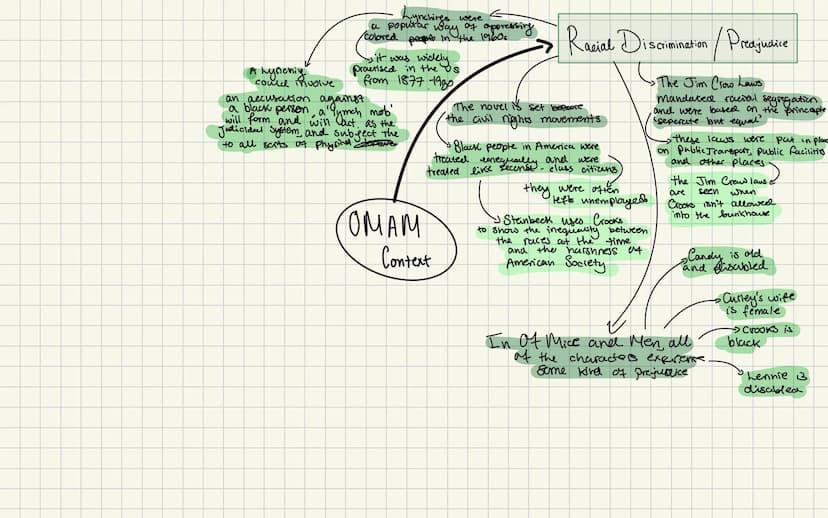 Racial Discrimination / Predjudice
Lynchings were
a popular way of oppressing
colored people in the 1960s
it was widely
practised in the US
from 1877-1950
A Lynching
could involve
an accusation against
a black person, a 'lynch mob'
will form and will act as the
judicial system and subject the
to all sorts of physical
The novel is set before
the civil rights movements
Black people in America were
treated unequally and were
treated like second-class citizens
they were often
left unemployed
Steinbeck uses Crooks
to show the inequality between
the races at the time
and the harshness of
American Society
The Jim Crow Laws
mandated racial segregation
and were based on the principle
'separate but equal'
these laws were put in place
on Public Transport, Public Facilities
and other places
the Jim Crow laws
are seen when
Crooks isn't allowed
into the bunkhouse
OMAM
Context
In Of Mice and Men, all
of the characters experience
some kind of prejudice
Candy is old
and disabled
Curley's wife
is female
Crooks is
black
Lennie is
disabled